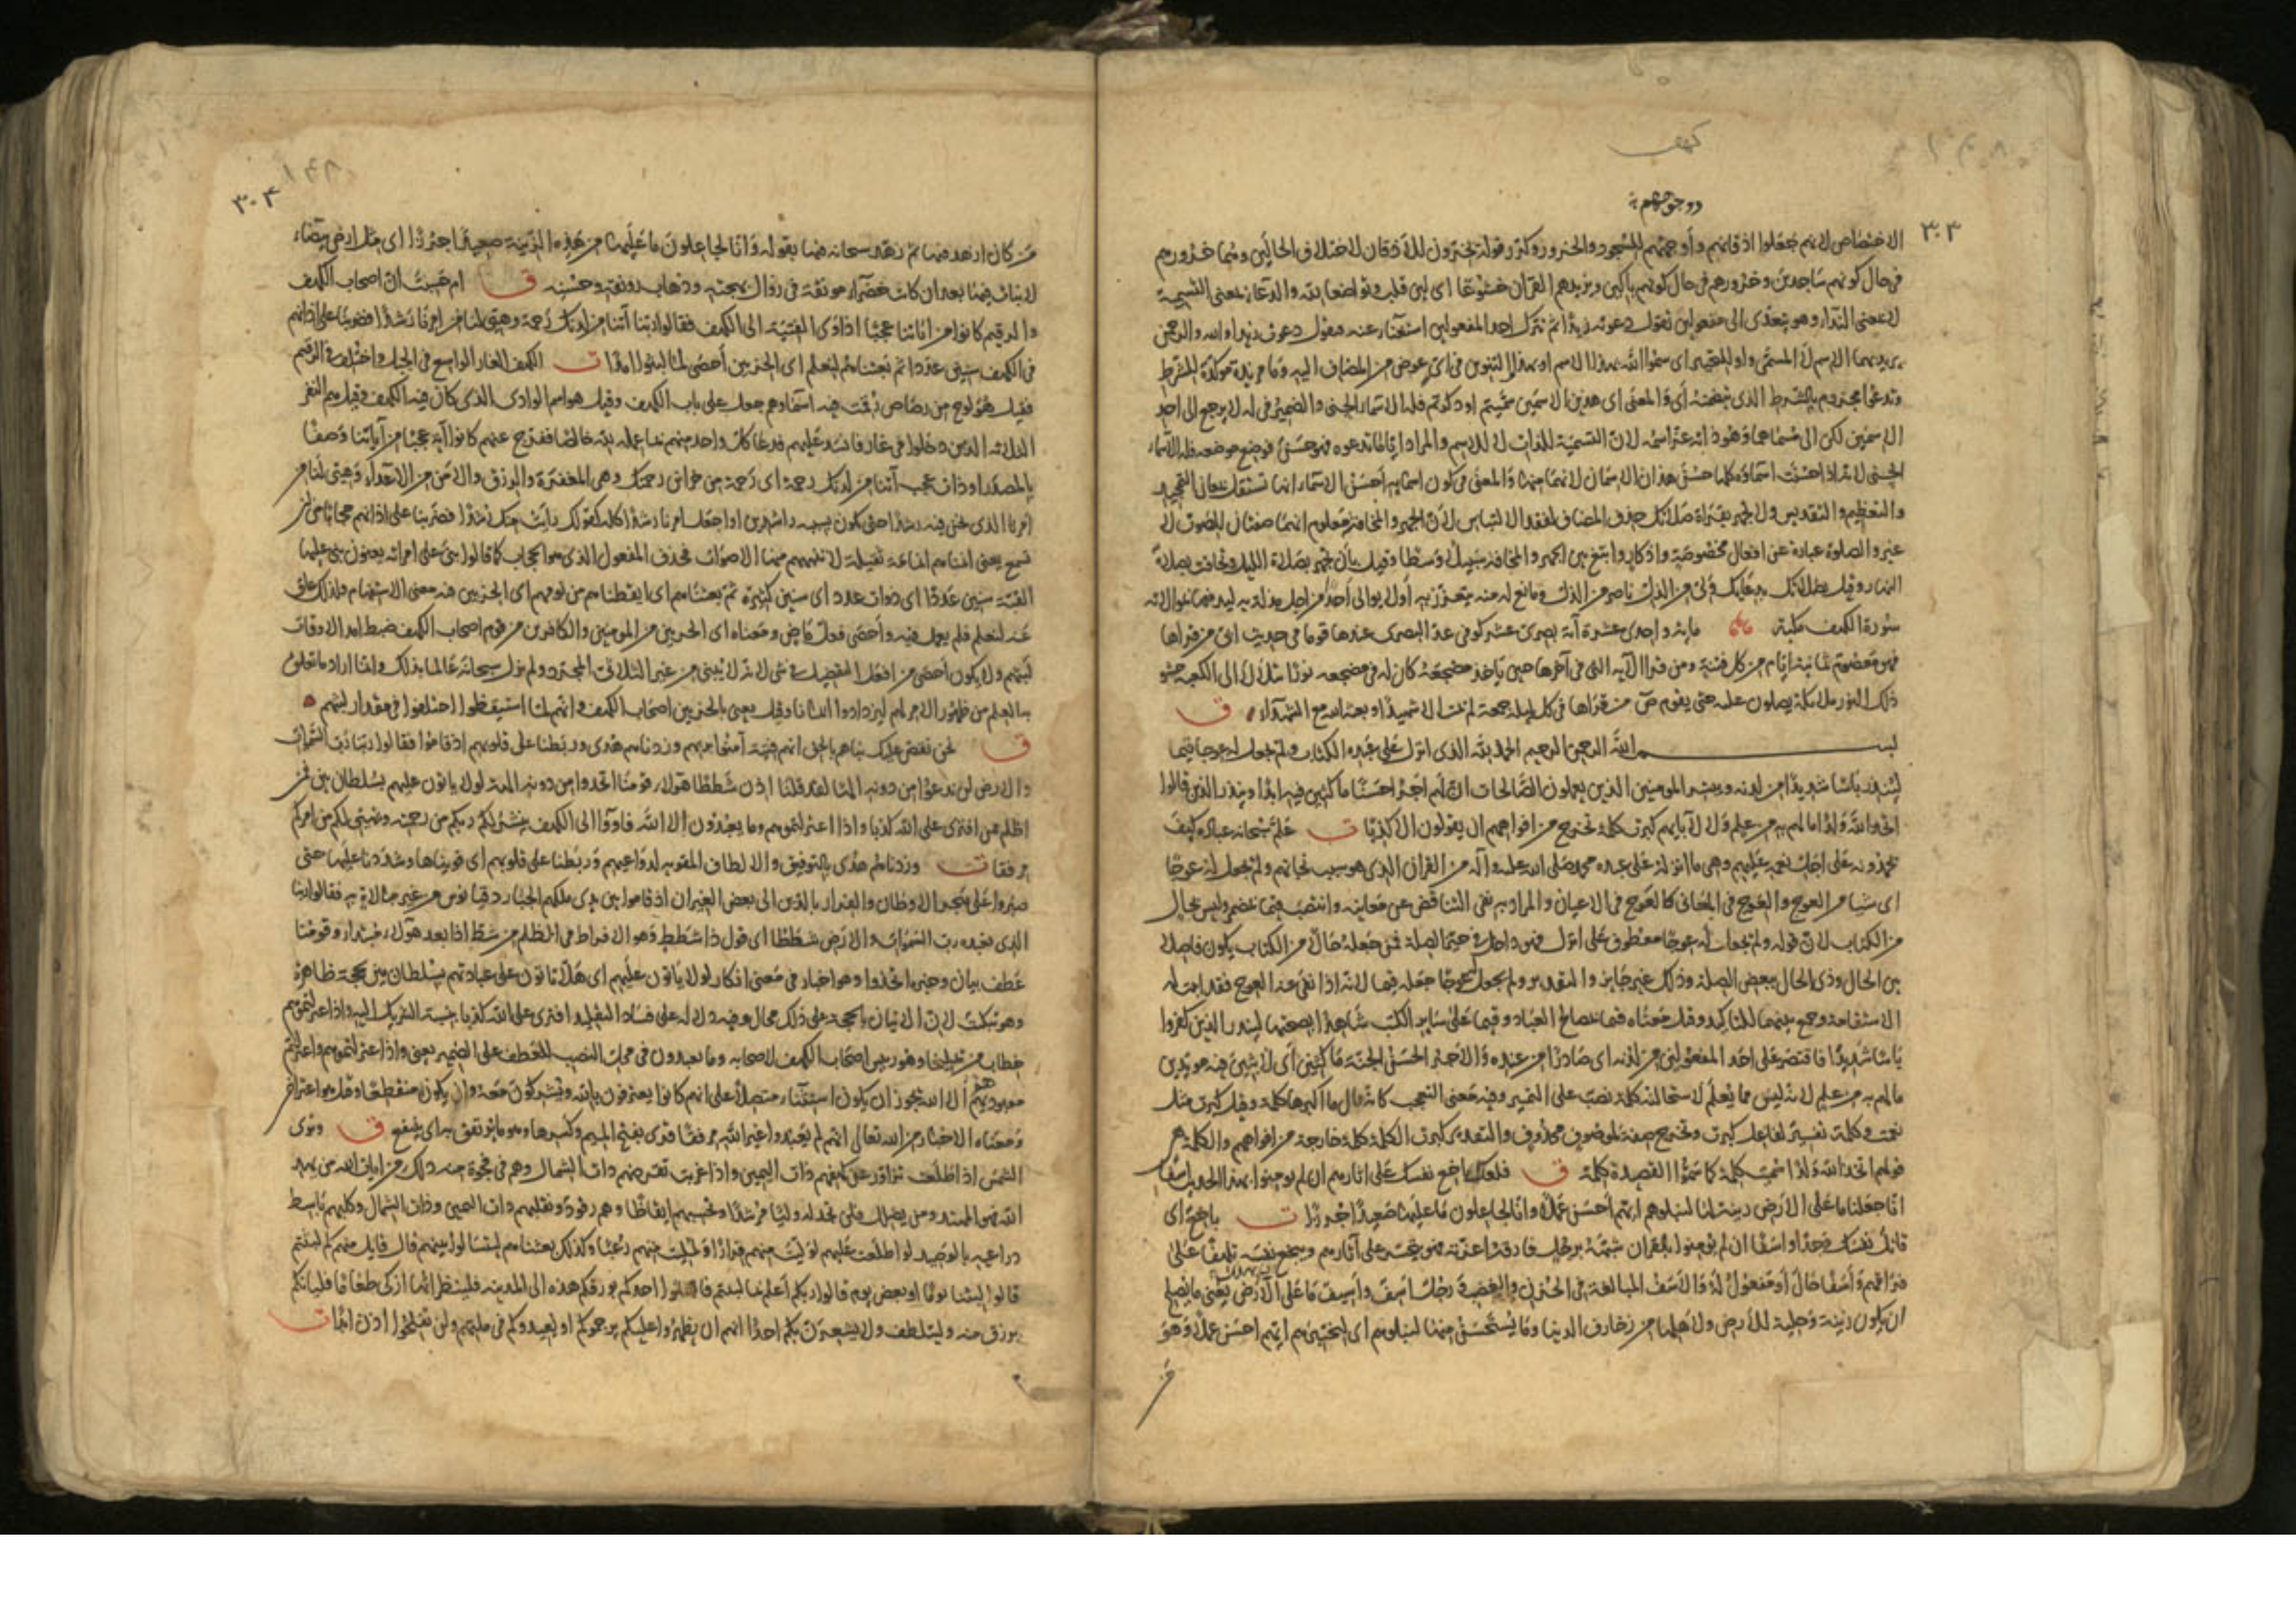 كهف
دد جوههم
٣٠٣
الاختصاص لانهم جعلوا اذقانهم وأوجههم للسجود والخرور وكرّر قوله يخرّون للأذقان لاختلاف الحالين وهما خرورهم
في حال كونهم ساجدين وخرورهم في حال كونهم باكين ويزيدهم القرآن خشوعا اى لين قلب وتواضعا لله والدعاء بمعنى التسمية
لا بمعنى النداء وهو يتعدّى الى مفعولين تقول دعوته زيدا ثم تترك احد المفعولين استغناء عنه فتقول دعوت زيدا والله والرحمن
يريد بهما الاسم لا المسمّى واو للتخيير اى سموا الله بهذا الاسم او بهذا والتنوين فى اىّ عوض من المضاف اليه وما مزيدة موكدة للشرط
وتدعوا مجزوم بالشرط الذى يتضمنه أى والمعنى اى هذين الاسمين سميتم او ذكرتم فله الاسماء الحسنى والضمير فى له لا يرجع الى احد
الاسمين لكن الى مسماهما وهو ذاته عز اسمه لان التسمية للذات لا للاسم والمراد ايّاما تدعوه فهو حسن فوضع موضعه فله الاسماء
الحسنى لانه اذا حسنت اسماؤه كلها حسن هذان الاسمان لانهما منها والمعنى فى كون اسمائه أحسن الاسماء انها تستقل بمعانى التمجيد
والتعظيم والتقديس ولا تجهر بقراءة صلاتك حذف المضاف لفقد الالتباس لأن الجهر والمخافتة معلوم انهما صفتان للصوت لا
غير والصلوة عبارة عن افعال مخصوصة واذكار وابتغ بين الجهر والمخافتة سبيلا وسطا وقيل بأن تجهر بصلاة الليل وتخافت بصلاة
النهار وقيل بصلاتك بدعائك ولىّ من الذل ناصر من الذل ومانع له منه يتعزز به أو لا يوالى أحدا من اجل مذلة به ليدفعها بموالاته
سورة الكهف مكية مائة واحدى عشرة آية بصرى عشر كوفى عدّ البصرى عندها قوما فى حديث ابىّ من قرأها
فهو معصوم ثمانية ايام من كل فتنة ومن قرأ الآية التى فى آخرها حين يأخذ مضجعه كان له فى مضجعه نورا يتلألأ الى الكعبة حشو
ذلك النور ملائكة يصلون عليه حتى يقوم ص من قرأها فى كل ليلة جمعة لم يمت الا شهيدا وبعثه الله مع الشهداء ق
بسم الله الرحمن الرحيم الحمد لله الذى انزل على عبده الكتاب ولم يجعل له عوجا قيما
لينذر بأسا شديدا من لدنه ويبشر المؤمنين الذين يعملون الصالحات ان لهم اجرا حسنا ماكثين فيه ابدا وينذر الذين قالوا
اتخذ الله ولدا ما لهم به من علم ولا لآبائهم كبرت كلمة تخرج من افواههم ان يقولون الا كذبا ت علّم سبحانه عباده كيف
يحمدونه على اجل نعمه عليهم وهى ما انزله على عبده محمد صلى الله عليه وآله من القرآن الذى هو سبب نجاتهم ولم يجعل له عوجا
اى شيئا من العوج والعوج فى المعانى كالعوج فى الاعيان والمراد به نفى التناقض عن معانيه وانتصب قيما بمضمر وليس بحال
من الكتاب لان قوله ولم يجعل له عوجا معطوف على انزل فهو داخل فى حيّز الصلة فمن جعله حالا من الكتاب يكون فاصلا
بين الحال وذى الحال ببعض الصلة وذلك غير جايز والتقدير ولم يجعل له عوجا جعله قيما لانه اذا نفى عنه العوج فقد اثبت له
الاستقامة وجمع بينهما للتاكيد وقيل معناه قيما بمصالح العباد وقيما على ساير الكتب شاهدا بصحتها لينذر الذين كفروا
بأسا شديدا فاقتصر على احد المفعولين من لدنه اى صادرا من عنده والاجر الحسن الجنة ماكثين اى لابثين فيه مؤبدين
ما لهم به من علم لانه ليس مما يُعلم لاستحالته كلمة نصب على التمييز وفيه معنى التعجب كانه قال ما اكبرها كلمة وقيل كبرت مثل
نعمت وكلمة تفسير لفاعل كبرت وتخرج صفة لموصوف محذوف والتقدير كبرت الكلمة كلمة خارجة من افواههم والكلمة هى
قولهم اتخذ الله ولدا سميت كلمة كما سمّوا القصيدة كلمة ق فلعلك باخع نفسك على اثارهم ان لم يومنوا بهذا الحديث اسفا
انا جعلنا ما على الارض زينة لها لنبلوهم ايهم أحسن عملا وانا لجاعلون ما عليها صعيدا جرزا ت باخع اى
قاتل نفسك وجدا واسفا ان لم يؤمنوا بالقران شبهه برجل فارقه اعزته فهو يتحسر على آثارهم ويبخع نفسه تلهفا على
فراقهم وأسفا حال أو مفعول له والأسف المبالغة فى الحزن والغضب رجل اسف وأسيف ما على الأرض يعنى ما يصلح
ان يكون زينة وحلية للارض ولاهلها من زخارف الدنيا وما يستحسن منها لنبلوهم اى لنختبرهم ايهم احسن عملا وهو
٣٠٤
١٤٨
من كان ازهد فيها ثم زهّد سبحانه فيها بقوله وانا لجاعلون ما عليها من هذه الزينة صعيدا جرزا اى مثل ارض بيضاء
لا نبات فيها بعد ان كانت خضراء مونقة فى زوال بهجته وذهاب رونقه وحسنه ق ام حسبت ان اصحاب الكهف
والرقيم كانوا من اياتنا عجبا اذ أوى الفتية الى الكهف فقالوا ربنا آتنا من لدنك رحمة وهيئ لنا من امرنا رشدا فضربنا على اذانهم
فى الكهف سنين عددا ثم بعثناهم لنعلم اى الحزبين أحصى لما لبثوا امدا ت الكهف الغار الواسع فى الجبل واختلف فى الرقيم
فقيل هو لوح من رصاص رقمت فيه اسماؤهم جعل على باب الكهف وقيل هو اسم الوادى الذى كان فيه الكهف وقيل هم النفر
الثلاثة الذين دخلوا فى غار فانسد عليهم فدعا كل واحد منهم بما عمله لله خالصا ففرج عنهم كانوا آية عجبا من آياتنا وصفا
بالمصدر او ذات عجب آتنا من لدنك رحمة اى رحمة من خزائن رحمتك وهى المغفرة والرزق والامن من الاعداء وهيئ لنا من
أمرنا الذى نحن فيه رشدا حتى نكون بسببه راشدين او اجعل امرنا رشدا كله كقولك رأيت منك رشدا فضربنا على اذانهم حجابا من ان
تسمع يعنى انمناهم انامة ثقيلة لا تنبههم فيها الاصوات فحذف المفعول الذى هو الحجاب كما قالوا بنى على امرأته يعنون بنى عليها
القبّة سنين عددا اى ذوات عدد اى سنين كثيرة ثم بعثناهم اى ايقظناهم من نومهم اى الحزبين فيه معنى الاستفهام ولذلك علق
عنه لنعلم فلم يعمل فيه وأحصى فعل ماض ومعناه اى الحزبين من المومنين والكافرين من قوم اصحاب الكهف ضبط امد الاوقات
لبثهم ولا يكون أحصى من افعل التفضيل فى شىء لانه لا يبنى من غير الثلاثى المجرد ولم يزل سبحانه عالما بذلك وانما اراد ما تعلق
به العلم من ظهور الامر لهم ليزدادوا ايمانا وقيل يعنى بالحزبين اصحاب الكهف وانهم لما استيقظوا اختلفوا فى مقدار لبثهم
ق نحن نقص عليك نبأهم بالحق انهم فتية آمنوا بربهم وزدناهم هدى وربطنا على قلوبهم اذ قاموا فقالوا ربنا رب السموات
والارض لن ندعوا من دونه الها لقد قلنا اذن شططا هؤلاء قومنا اتخذوا من دونه الهة لولا يأتون عليهم بسلطان بيّن فمن
اظلم ممن افترى على الله كذبا واذا اعتزلتموهم وما يعبدون الا الله فأووا الى الكهف ينشر لكم ربكم من رحمته ويهيئ لكم من امركم
مرفقا ت وزدناهم هدى بالتوفيق والالطاف المقوية لدواعيهم وربطنا على قلوبهم اى قويناها وشددنا عليها حتى
صبروا على هجر الاوطان والفرار بالدين الى بعض الغيران اذ قاموا بين يدى ملكهم الجبار دقيانوس من غير مبالاة به فقالوا ربنا
الذى نعبده رب السموات والارض شططا اى قول ذا شطط وهو الافراط فى الظلم من شطّ اذا بعد هؤلاء مبتدأ وقومنا
عطف بيان وخبره اتخذوا وهو اخبار فى معنى انكار لولا يأتون عليهم اى هلا ياتون على عبادتهم بسلطان بين بحجة ظاهرة
وهو تبكيت لان الاتيان بالحجة على ذلك محال وفيه دلالة على فساد التقليد افترى على الله كذبا بنسبة الشريك اليه واذ اعتزلتموهم
خطاب من تمليخا وهو رييس اصحاب الكهف لاصحابه وما يعبدون فى محل النصب للعطف على الضمير يعنى واذ اعتزلتموهم واعتزلتم
معبوديهم الا الله يجوز ان يكون استثناء متصلا على انهم كانوا يعترفون بالله ويشركون معه وان يكون منقطعا وقيل هو اعتراض
ومعناه الاخبار من الله تعالى انهم لم يعبدوا غير الله مرفقا قرى بفتح الميم وكسرها وهو ما يرتفق به اى ينتفع ق وترى
الشمس اذا طلعت تزاور عن كهفهم ذات اليمين واذا غربت تقرضهم ذات الشمال وهم فى فجوة منه ذلك من ايات الله من يهد
الله فهو المهتد ومن يضلل فلن تجد له وليا مرشدا وتحسبهم ايقاظا وهم رقود ونقلبهم ذات اليمين وذات الشمال وكلبهم باسط
ذراعيه بالوصيد لو اطلعت عليهم لوليت منهم فرارا ولملئت منهم رعبا وكذلك بعثناهم ليتسالوا بينهم قال قايل منهم كم لبثتم
قالوا لبثنا يوما او بعض يوم قالوا ربكم أعلم بما لبثتم فابعثوا احدكم بورقكم هذه الى المدينه فلينظر ايها ازكى طعاما فلياتكم
برزق منه وليتلطف ولا يشعرن بكم احدا انهم ان يظهروا عليكم يرجموكم او يعيدوكم فى ملتهم ولن تفلحوا اذن ابدا ت